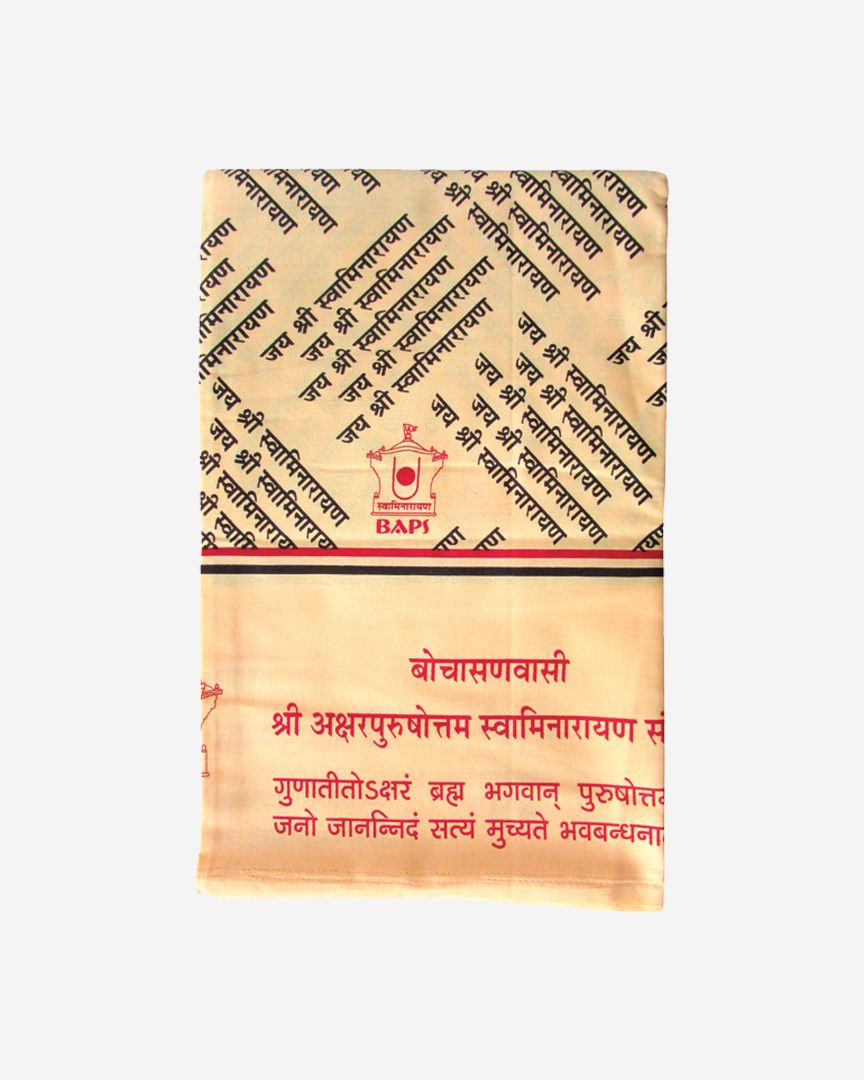 जय श्री स्वामिनारायण
जय श्री स्वामिनारायण
जय श्री स्वामिनारायण
जय श्री स्वामिनारायण
जय श्री स्वामिनारायण
जय श्री स्वामिनारायण
जय श्री स्वामिनारायण
जय श्री स्वामिनारायण
जय श्री स्वामिनारायण
जय श्री स्वामिनारायण
जय श्री स्वामिनारायण
श्री स्वामिनारायण
स्वामिनारायण
BAPS
बोचासणवासी
श्री अक्षरपुरुषोत्तम स्वामिनारायण
गुणातीतोऽक्षरं ब्रह्म भगवान्
जनो जानन्निदं सत्यं मुच्यते